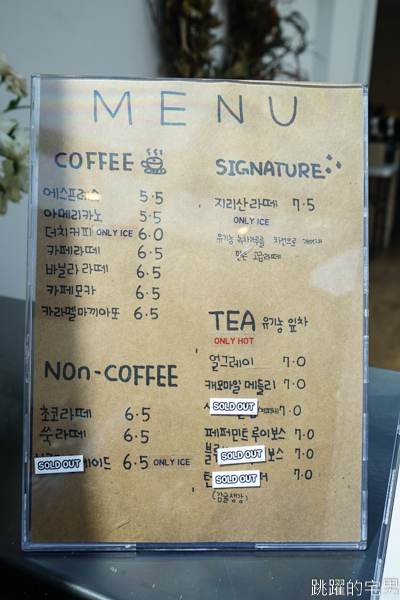 MENU
COFFEE
에스프레소 5.5
아메리카노 5.5
더치커피 ONLY ICE 6.0
카페라떼 6.5
바닐라 라떼 6.5
카페모카 6.5
카라멜마끼아또 6.5
NOn-COFFEE
초코라떼 6.5
쑥라떼 6.5
SOLD OUT 에이드 6.5 ONLY ICE
SIGNATURE
지리산라떼 7.5
ONLY ICE
유기농
TEA 유기농 잎차
ONLY HOT
얼그레이 7.0
캐모마일 메들리 7.0
SOLD OUT 7.0
페퍼민트 루이보스 7.0
블 SOLD OUT 보스 7.0
SOLD OUT 7.0
(감귤생강)
跳躍的宅男